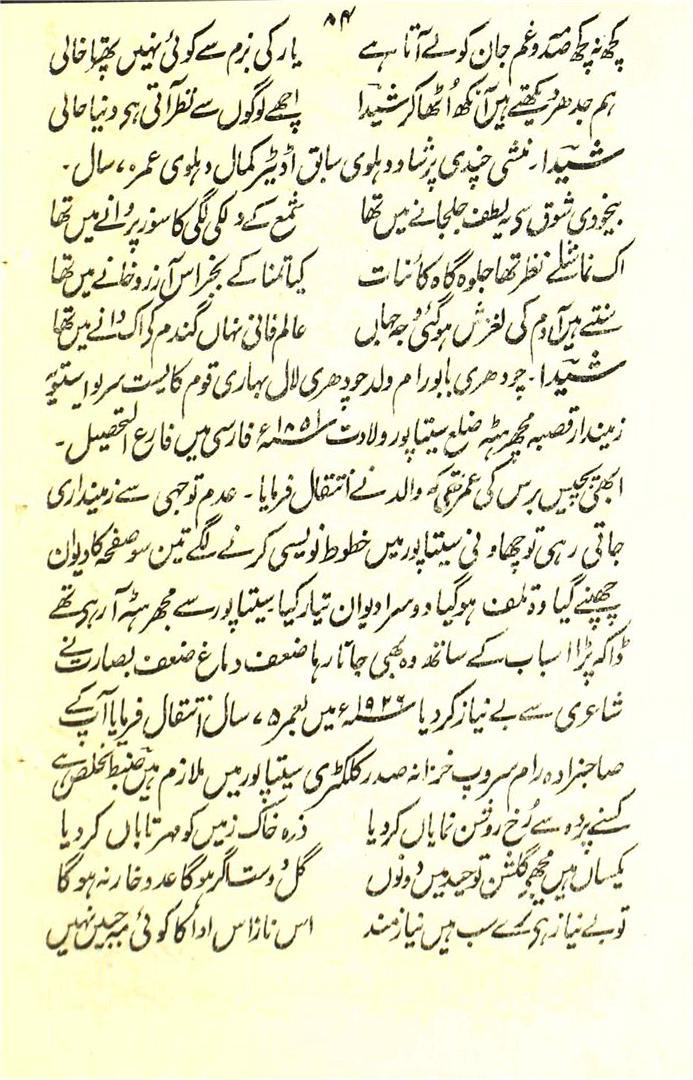 ۵۴
کچھ نہ کچھ صدمہ و غم جان کو لے آتا ہے یار کی بزم سے کوئی نہیں پھرتا خالی
ہم جدھر دیکھتے ہیں آنکھ اُٹھا کر شیدؔا اچھے لوگوں سے نظر آتی ہی دنیا خالی
شیدؔا۔ منشی چندی پرشاد دہلوی سابق اڈیٹر کمال دہلوی عمر ۷۰ سال۔
بیخودی شوق سی یہ لطف جلجانے میں تھا شمع کے دلکی لگی کا سوز پروانے میں تھا
اک نمائے نظر تھا جلوہ گاہ کائنات کیا تمنا کے بجز اس آرزو خانے میں تھا
سنتے ہیں آدم کی لغزش ہو گئی وجہ جہاں عالم فانی نہاں گندم کی اک دانے میں تھا
شیدؔا۔ چودھری بابو رام ولد چودھری لال بہاری قوم کایست سریواستویہ
زمیندار قصبہ مچھرہٹہ ضلع سیتاپور ولادت ۱۸۵۱ء فارسی میں فارغ التحصیل۔
ابھی پچیس برس کی عمر تھی کہ والد نے انتقال فرمایا۔ عدم توجہی سے زمینداری
جاتی رہی تو چھاونی سیتاپور میں خطوط نویسی کرنے لگے تین سو صفحہ کا دیوان
چھپنے گیا وہ تلف ہو گیا دوسرا دیوان تیار کیا سیتاپور سے مچھرہٹہ آ رہی تھے
ڈاکہ پڑا اسباب کے ساتھ وہ بھی جاتا رہا ضعف دماغ ضعف بصارت نے
شاعری سے بے نیاز کر دیا ۱۹۲۶ء میں بعمر ۷۵ سال انتقال فرمایا آپ کے
صاحبزادہ رام سروپ خزانہ صدر کلکٹری سیتاپور میں ملازم ہیں ضبط تخلص ہے
کسنے پردہ سے رُخ روشن نمایاں کر دیا ذرہ خاک زمیں کو مہر تاباں کر دیا
یکساں ہیں مجھ پر گلشن توحید میں دونوں گل دوست اگر ہوگا عدو خار نہ ہوگا
تو بے نیاز ہی ترے سب ہیں نیازمند اس ناز اس ادا کا کوئی مہ جبیں نہیں